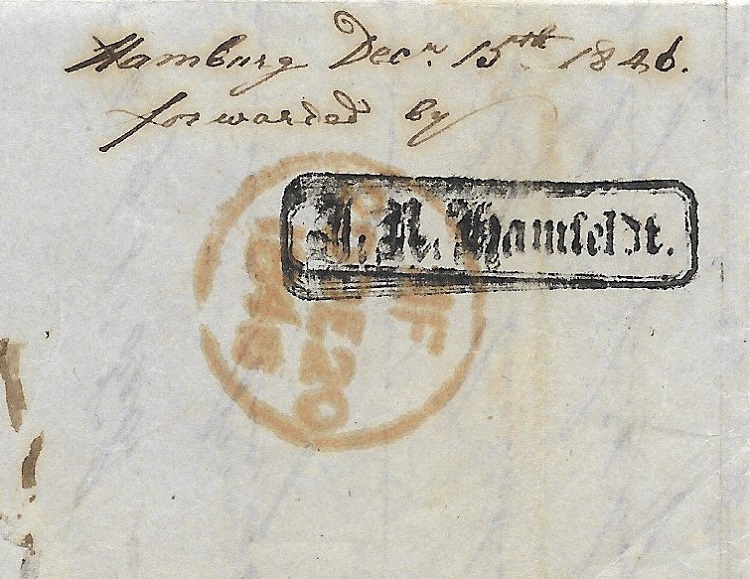 Hamburg Decr. 15th 1846.
forwarded by
J. N. Hamfeldt.
DE 20
1846